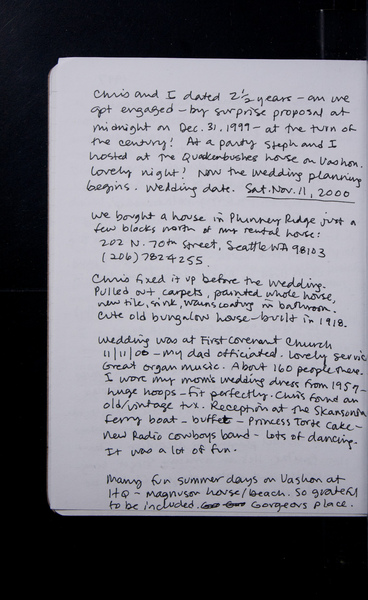 Chris and I dated 2½ years - an we
got engaged - by surprise proposal at
midnight on Dec. 31, 1999 - at the turn of
the century! At a party Steph and I
hosted at the Quakenbushes house on Vashon.
Lovely night! Now the wedding planning
begins. Wedding date. Sat. Nov. 11, 2000
We bought a house in Phinney Ridge just a
few blocks north of my rental house:
202 N. 70th Street, Seattle WA 98103
(206) 7824255.
Chris fixed it up before the wedding.
Pulled out carpets, painted whole house,
new tile, sink, wainscoating in bathroom.
Cute old bungalow house - built in 1918.
Wedding was at First Covenent Church
11/11/00 - my dad officiated. Lovely servic
Great organ music. About 160 people there.
I wore my mom's wedding dress from 1957 -
huge hoops - fit perfectly. Chris found an
old/vintage tux. Reception at the Skansonia
Ferry boat - buffet - Princess Torte Cake -
New Radio Cowboys band - lots of dancing.
It was a lot of fun.
Many fun summer days on Vashon at
HQ - Magnuson house/beach. So grateful
to be included. Gorgeous place.